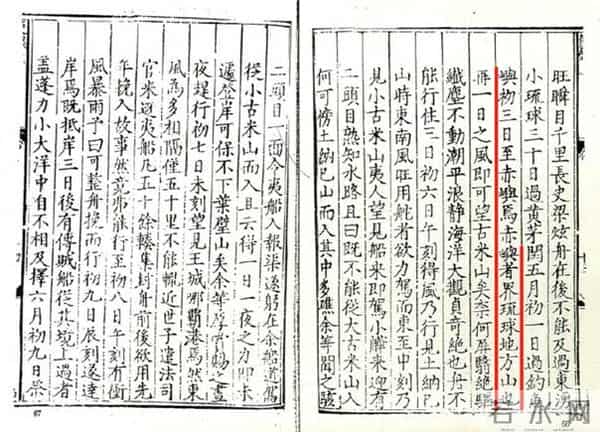 旺瞬目千里長史梁炫舟在後不能及過東湧
小琉球三十日過黃茅閏五月初一日過釣魚
嶼初三日至赤嶼焉赤嶼者界琉球地方山也
再一日之風即可望古米山矣奈何屏翳絕驅
纖塵不動潮平浪靜海洋大觀真奇絕也舟不
能行住三日初六日午刻得風乃行見土納已
山時東南風旺用舵者欲力駕而東至申刻乃
見小古米山夷人望見船來即駕小來迎有
二頭目熟知水路且曰既不能從大古米山入
何可傍土納已山而入其中多礁余等聞之駭
二頭目一面令夷船人報遂躲在余船道駕
從小古米山而入且云得一日一夜之力即未
遽登岸可保不下葉壁山矣余等厚賜之晝
夜趕行初七日未刻望見王城那覇港焉然東
風為多相隔僅五十里不能輒近世子遣法司
官來迎夷船凡五十餘集封舟前後欲用先
年挽入故事然竟弗能行至初八日午刻有
風暴雨予曰可整舟挽而行初九日辰刻遂達
岸焉既抵岸三日後有傳賊船從其境上過者
蓋逢力小大洋中自不相及擇六月初九日祭
67
若水网